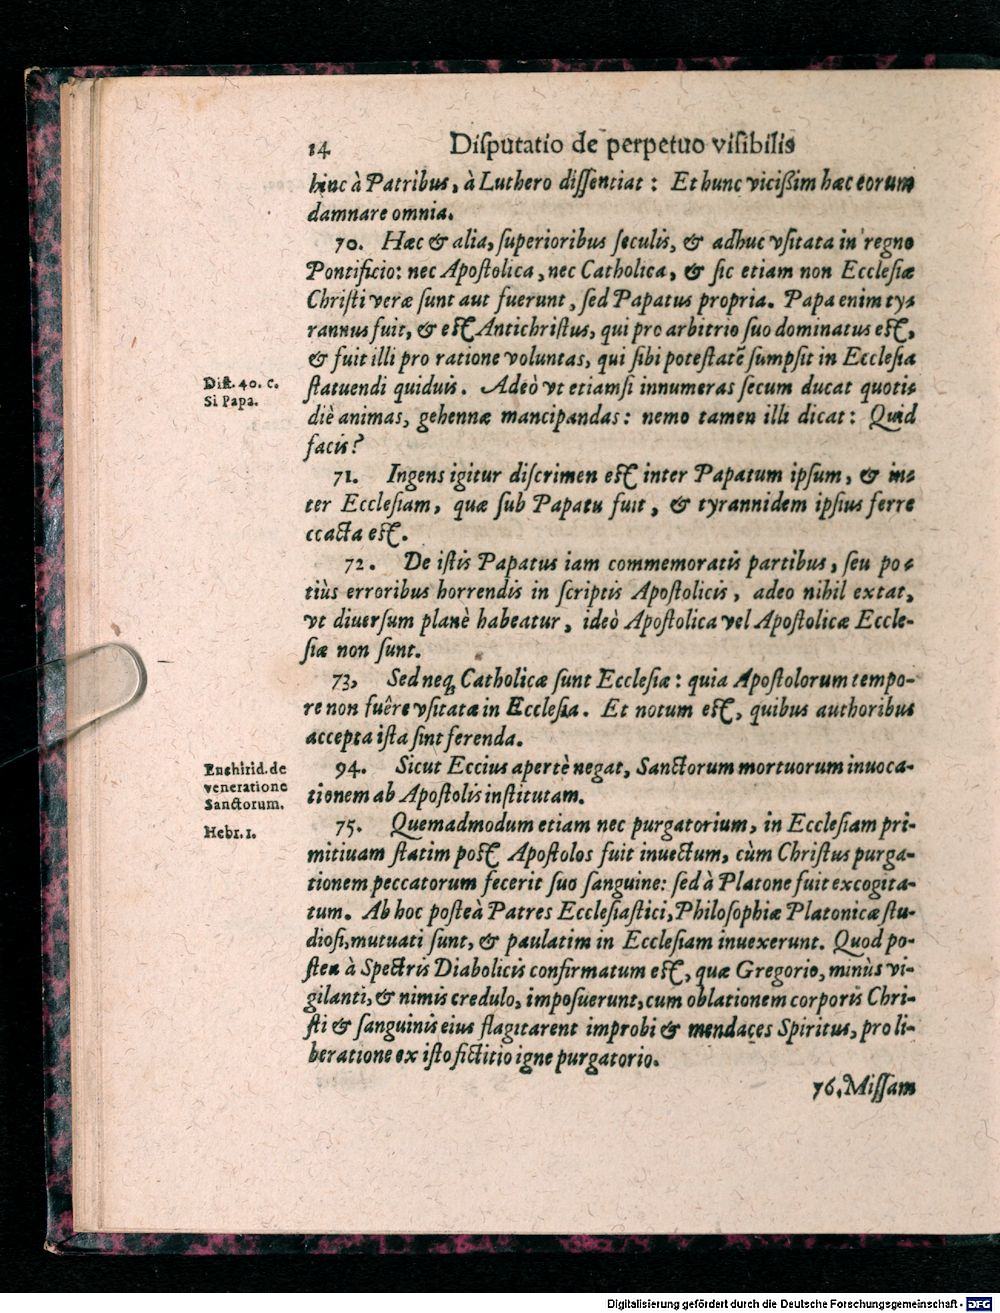 14 Disputatio de perpetuo visibilis
hinc à Patribus, à Luthero dissentiat : Et hunc vicißim hæc eorum
damnare omnia.
70. Hæc & alia, superioribus seculis, & adhuc vsitata in regno
Pontificio: nec Apostolica, nec Catholica, & sic etiam non Ecclesiæ
Christi veræ sunt aut fuerunt, sed Papatus propria. Papa enim ty-
rannus fuit, & est Antichristus, qui pro arbitrio suo dominatus est,
& fuit illi pro ratione voluntas, qui sibi potestatē sumpsit in Ecclesia
Dist. 40. c.
Si Papa.
statuendi quiduis. Adeò vt etiamsi innumeras secum ducat quoti-
diè animas, gehennæ mancipandas: nemo tamen illi dicat: Quid
facis?
71. Ingens igitur discrimen est inter Papatum ipsum, & in-
ter Ecclesiam, quæ sub Papatu fuit, & tyrannidem ipsius ferre
ccacta est.
72. De istis Papatus iam commemoratis partibus, seu po-
tiùs erroribus horrendis in scriptis Apostolicis, adeo nihil extat,
vt diuersum planè habeatur, ideò Apostolica vel Apostolicæ Eccle-
siæ non sunt.
73, Sed neq; Catholicæ sunt Ecclesiæ: quia Apostolorum tempo-
re non fuêre vsitata in Ecclesia. Et notum est, quibus authoribus
accepta ista sint ferenda.
Enchirid. de
veneratione
Sanctorum.
94. Sicut Eccius apertè negat, Sanctorum mortuorum inuoca-
tionem ab Apostolis institutam.
Hebr. 1.
75. Quemadmodum etiam nec purgatorium, in Ecclesiam pri-
mitiuam statim post Apostolos fuit inuectum, cùm Christus purga-
tionem peccatorum fecerit suo sanguine: sed à Platone fuit excogita-
tum. Ab hoc posteà Patres Ecclesiastici, Philosophiæ Platonicæ stu-
diosi, mutuati sunt, & paulatim in Ecclesiam inuexerunt. Quod po-
stea à Spectris Diabolicis confirmatum est, quæ Gregorio, minùs vi-
gilanti, & nimis credulo, imposuerunt, cum oblationem corporis Chri-
sti & sanguinis eius flagitarent improbi & mendaces Spiritus, pro li-
beratione ex isto fictitio igne purgatorio.
76. Missam
Digitalisierung gefördert durch die Deutsche Forschungsgemeinschaft - DFG